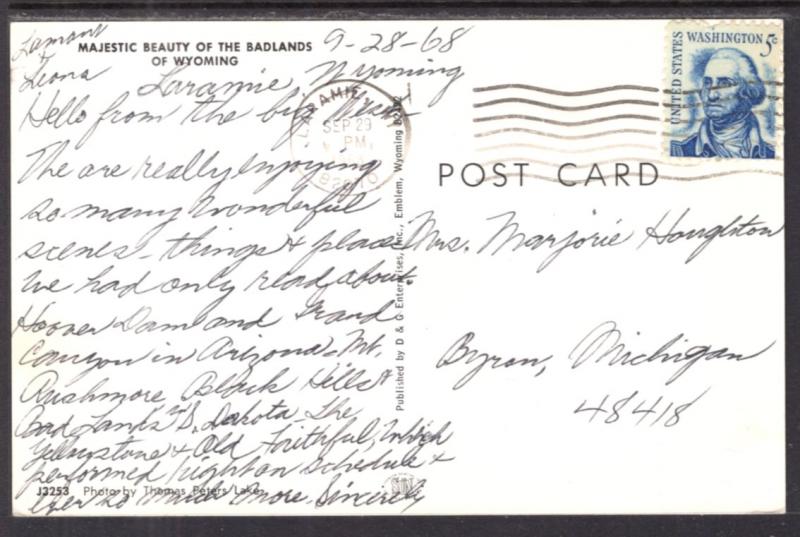 MAJESTIC BEAUTY OF THE BADLANDS
OF WYOMING
9-28-68
Laramie Wyoming
Hello from the big
The are really enjoying
so many wonderful
scenes - things & place
we had only read about.
Hoover Dam and Grand
Canyon in Arizona - Mt.
Rushmore Black Hills &
Bad Lands S. Dakota The
Yellowstone & Old Faithful, Which
performed right on schedule &
ever so much more. Sincerely
Lamont
Leona
J3253 Photo by Thomas Peters Lake
Published by D & G Enterprises, Inc., Emblem, Wyoming
LARAMIE
SEP 29
PM
UNITED STATES
WASHINGTON 5c
POST CARD
Mrs. Marjorie Houghton
Byron, Michigan
48418